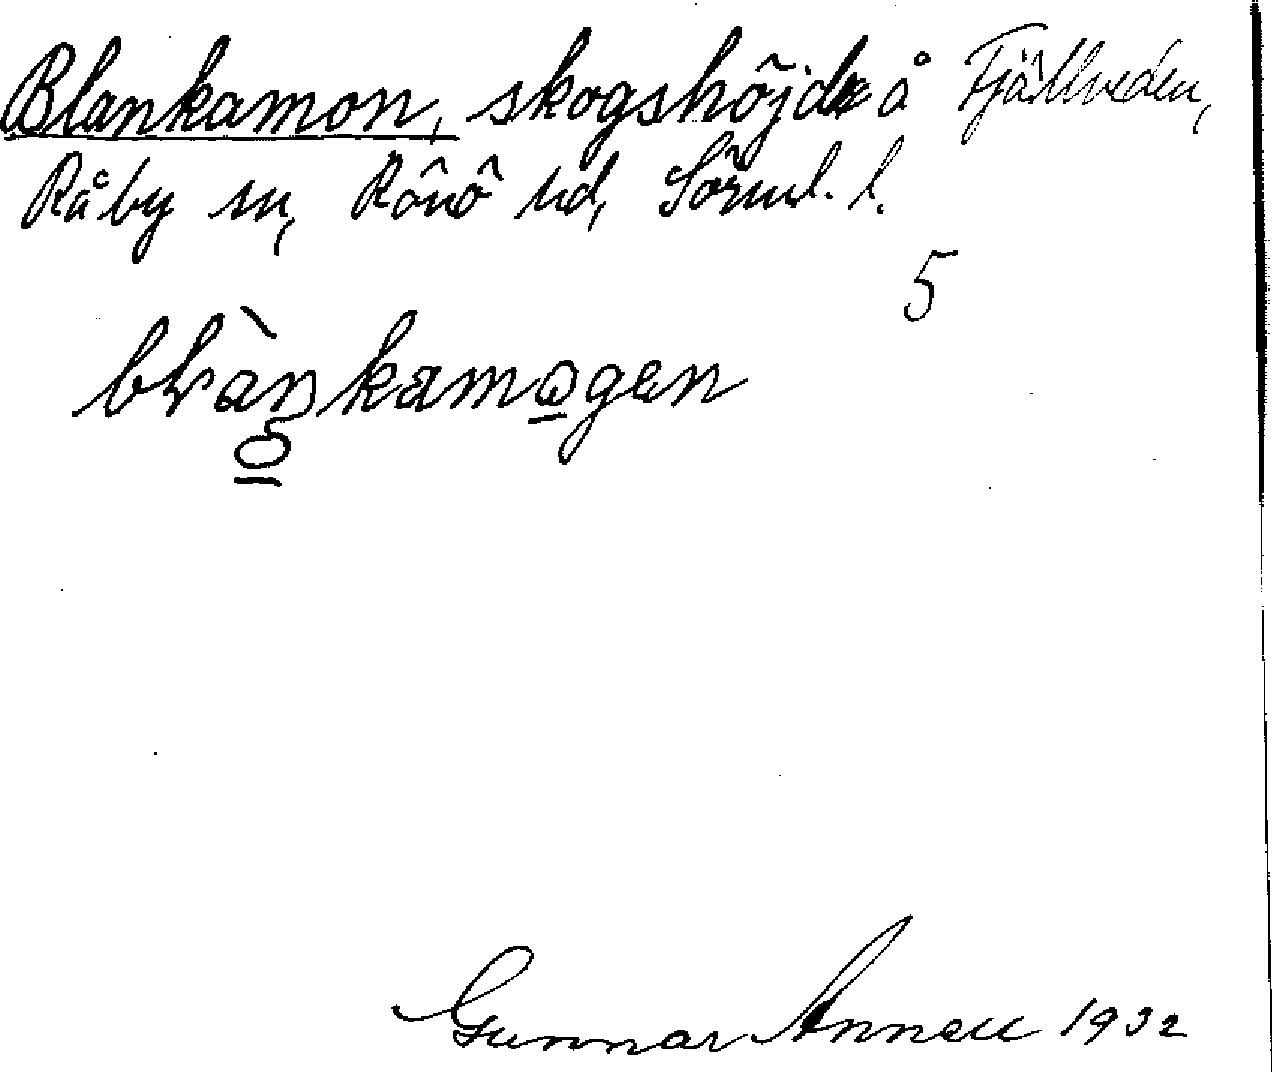 Blankamon, skogshöjd å Fjällveden,
Råby sn, Rönö hd, Sörml. l.
5
blàŋkamo̲gen
Gunnar Annell 1932